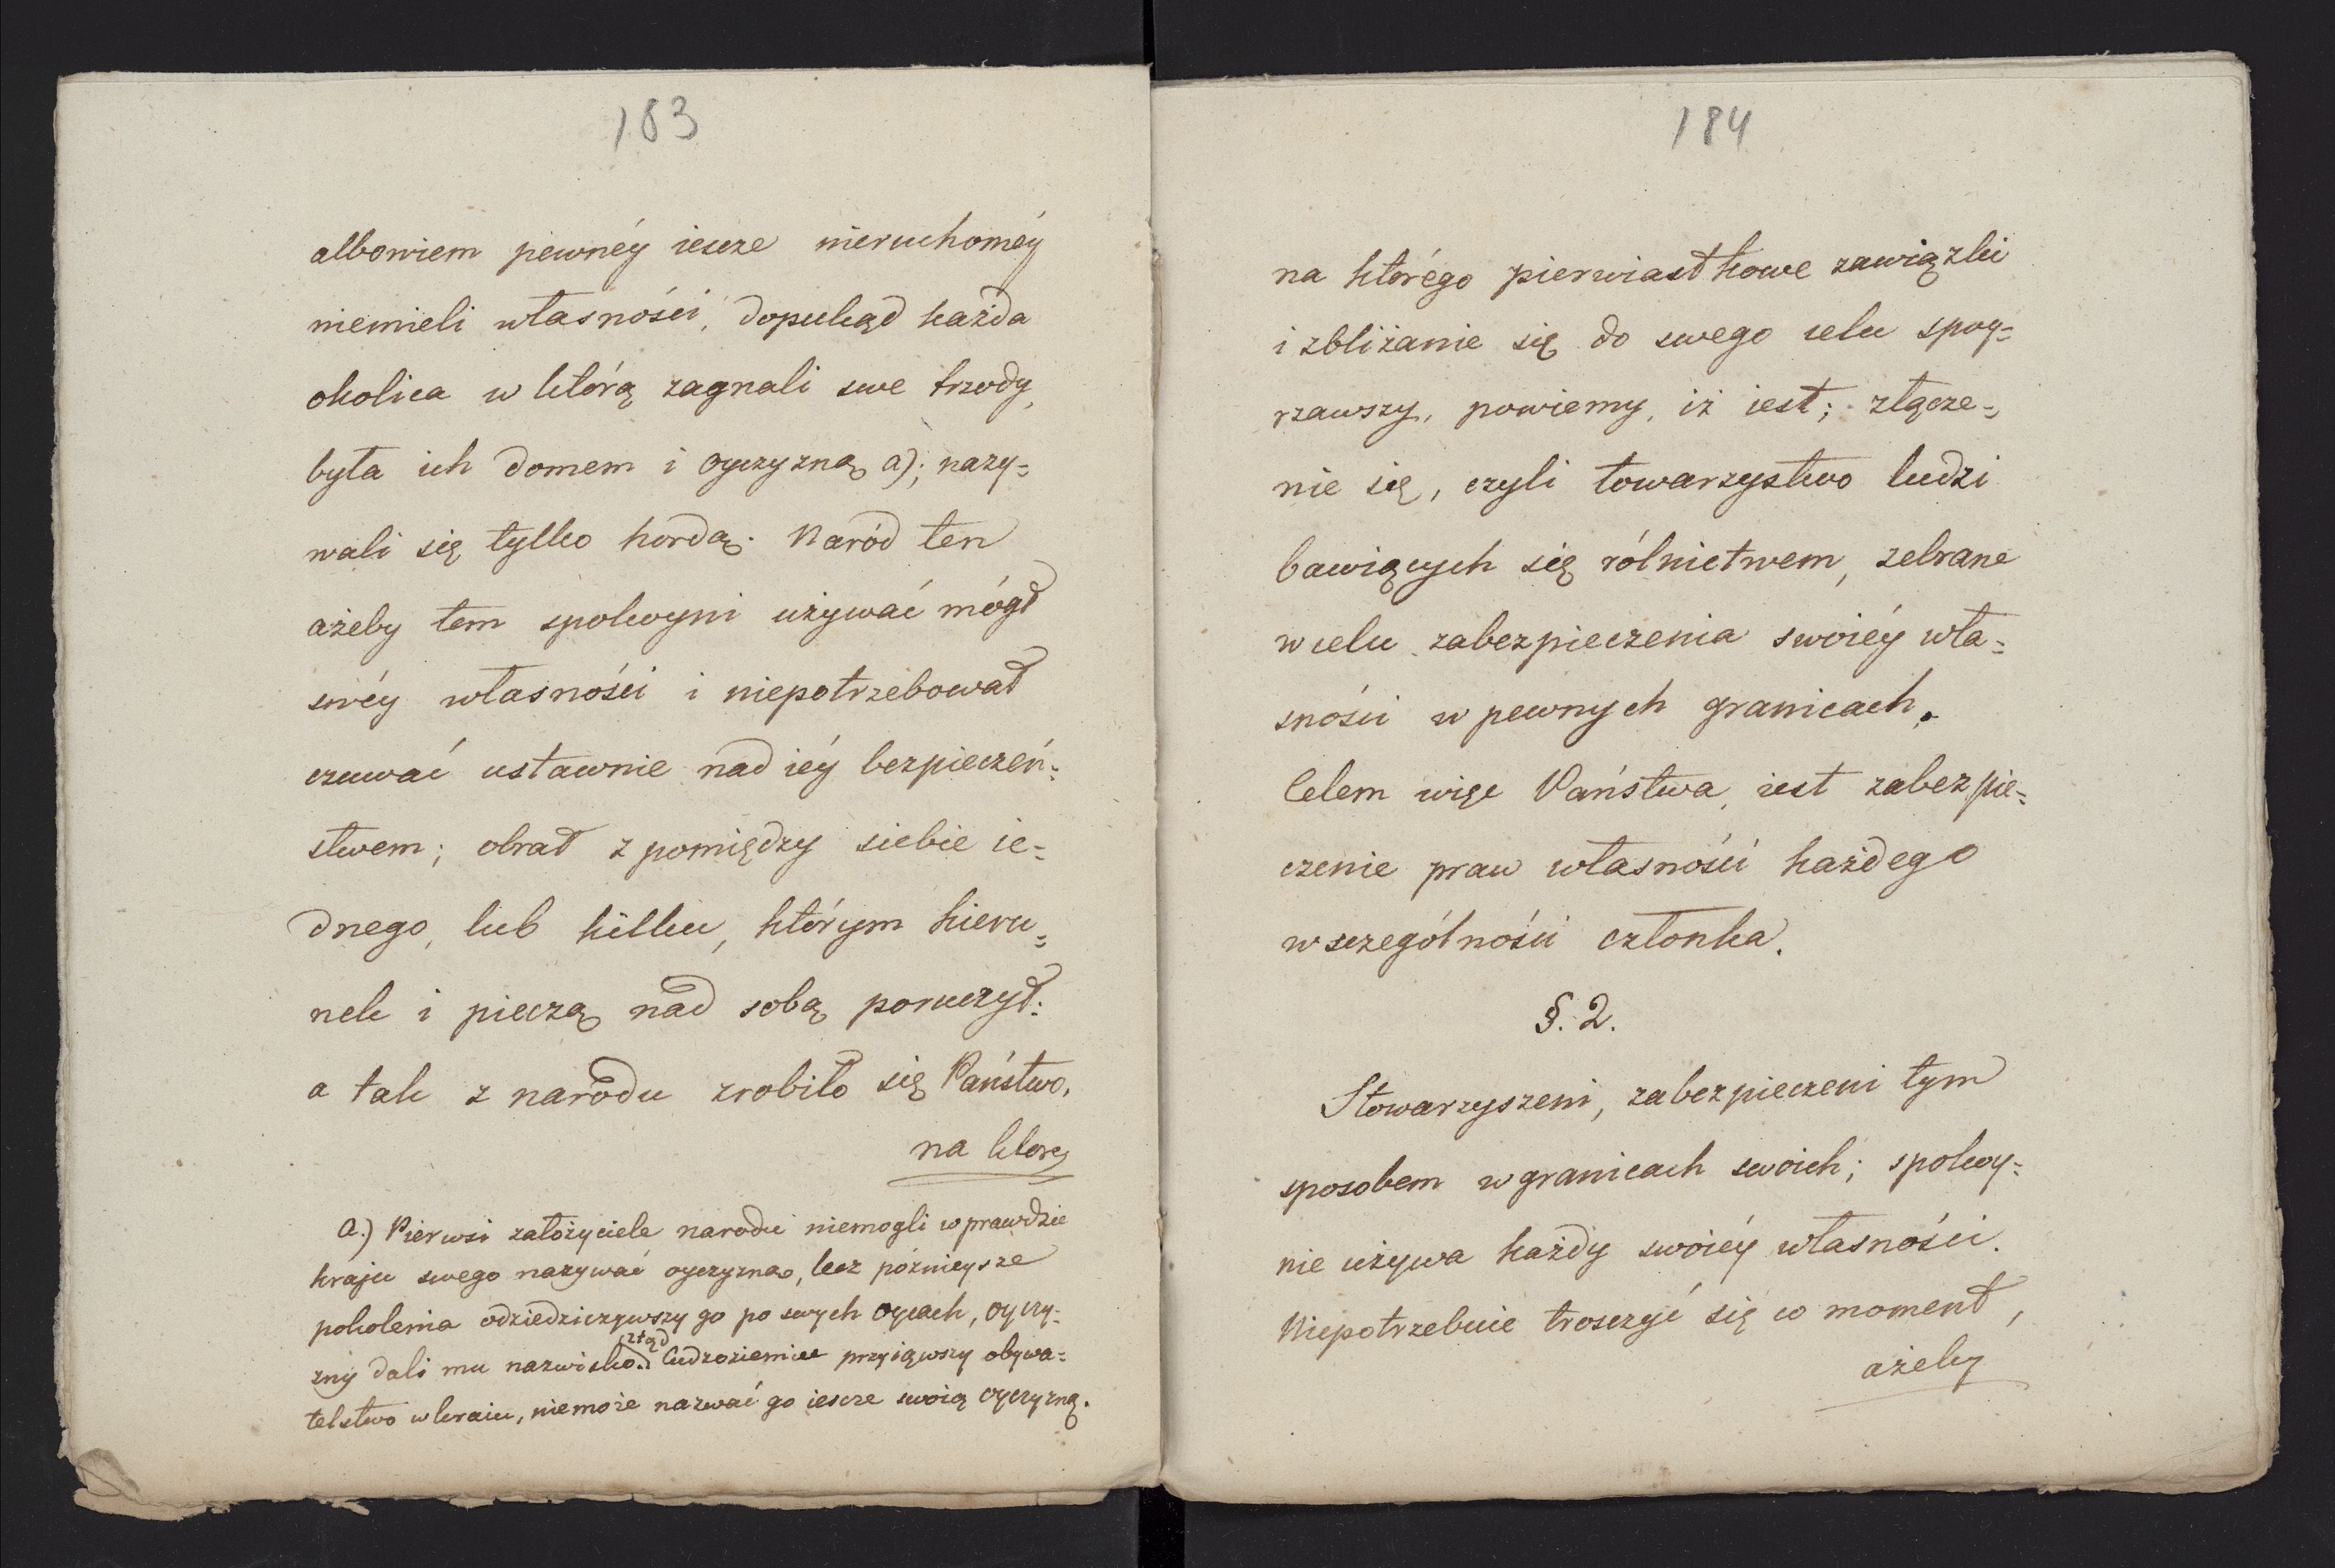 183
albowiem pewnéy iescze nieruchoméy
niemieli własności, dopukąd każda
okolica w którą zagnali swe trzody,
była ich domem i oyczyzną a); nazy=
wali się tylko hordą. Naród ten
ażeby tem spokoyni używać mógł
swéy własności i niepotrzebował
czuwać ustawnie nad iéy bezpieczeń=
stwem; obrał z pomiędzy siebie ie=
dnego, lub kilku, którym kieru=
nek i pieczą nad sobą poruczył:
a tak z narodu zrobiło się Państwo,
na który
a.) Pierwsi założyciele narodu niemogli wprawdzie
kraju swego nazywać oyczyzną, lecz późnieysze
pokolenia odziedziczywszy go po swych oycach, oyczy=
zny dali mu nazwisko. ztąd Cudzoziemiec przyiąwszy obywa=
telstwo w kraiu, niemoże nazwać go iescze swoią oyczyzną.
184
na którego pierwiastkowe zawiązki
i zbliżanie się do swego celu spoy=
rzawszy, powiemy, iż iest; złącze=
nie się, czyli towarzystwo ludzi
bawiących się rólnictwem, zebrane
w celu zabezpieczenia swoiéy wła=
sności w pewnych granicach.
Celem więc Państwa, iest zabezpie=
czenie praw własności każdego
w sczególności członka.
§. 2.
Stowarzyszeni, zabezpieczeni tym
sposobem w granicach swoich; spokoy=
nie używa każdy swoiéy własności.
Niepotrzebuie trosczyć się co moment,
ażeby